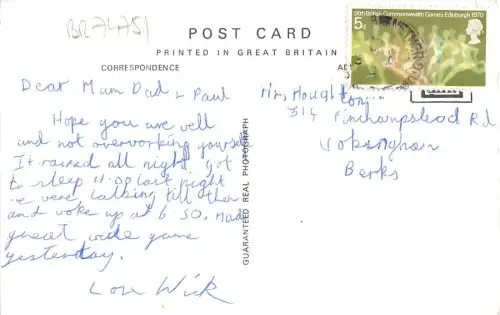 BR74751
POST CARD
PRINTED IN GREAT BRITAIN
CORRESPONDENCE
IXth British Commonwealth Games Edinburgh 1970
5d
Dear Mum Dad & Paul
Hope you are well
and not overworking yourselfs
It rained all night got
to sleep 11.00 last night
we were talking till then
and woke up at 6.30. Made
great wide game
yesterday.
Love Nick
GUARANTEED REAL PHOTOGRAPH
Mr, Houghton
314 Finchampstead Rd
Wokingham
Berks